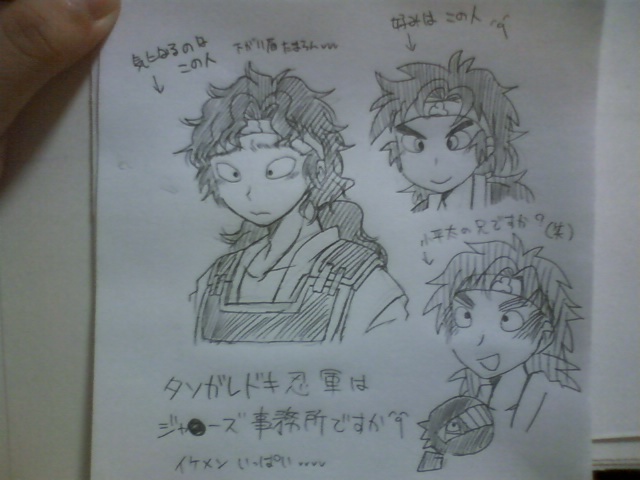 気になるのな
この人
下がり眉 たまらんwww
好みは この人 ^q^
小平太の兄ですか?(笑)
タソガレドキ忍軍は
ジャ●ーズ事務所ですか^q^
イケメン いっぱいwwww